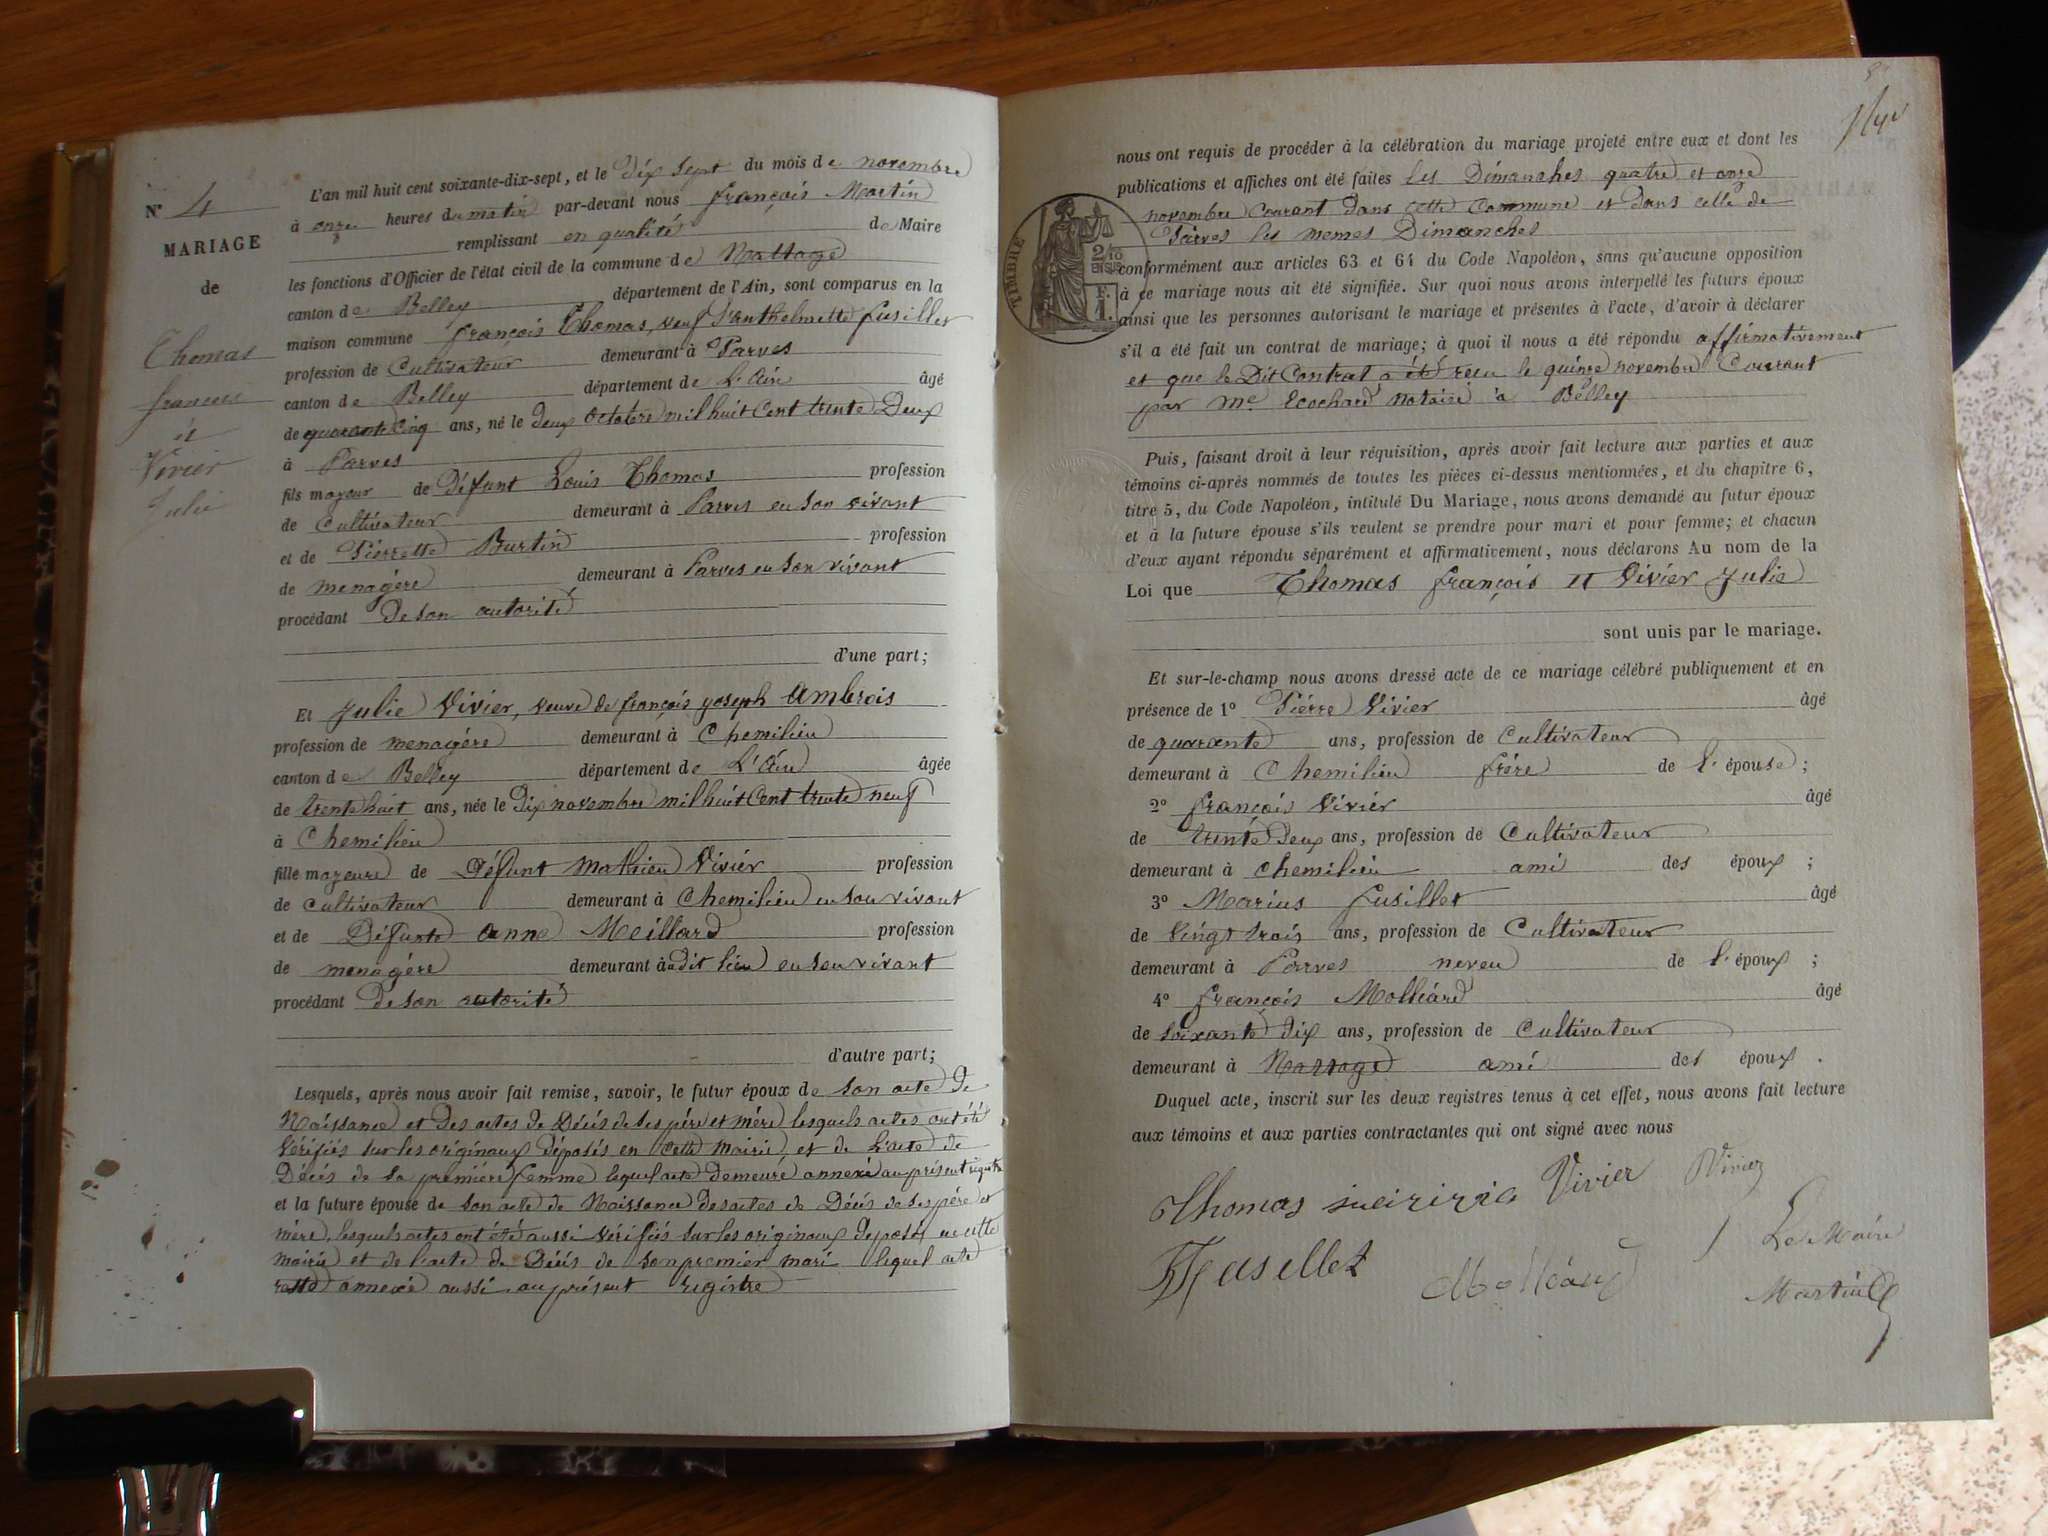 N° 4
MARIAGE
de
Thomas
françois
et
Vivier
Julie
L'an mil huit cent soixante-dix-sept, et le Dix sept du mois de novembre
à onze heures du matin par-devant nous françois Martin
remplissant en qualité de Maire
les fonctions d'Officier de l'état civil de la commune de Nattage
canton de Belley département de l'Ain, sont comparus en la
maison commune françois Thomas, veuf d'anthelmette fusillet
profession de Cultivateur demeurant à Parves
canton de Belley département de L'Ain âgé
de quarante cinq ans, né le Deux octobre mil huit Cent trente Deux
à Parves
fils majeur de Défunt Louis Thomas profession
de Cultivateur demeurant à Parves en son vivant
et de Pierrette Burtin profession
de menagére demeurant à Parves en son vivant
procédant de son autorité
d'une part;
Et Julie Vivier, veuve de françois joseph Ambrois
profession de menagére demeurant à Chemilieu
canton de Belley département de L'Ain âgée
de trente huit ans, née le Dix novembre mil huit Cent trente neuf
à Chemilieu
fille majeure de Défunt Mathieu Vivier profession
de Cultivateur demeurant à Chemilieu en son vivant
et de Défunte anne Meillard profession
de menagére demeurant audit lieu en son vivant
procédant de son autorité
d'autre part;
Lesquels, après nous avoir fait remise, savoir, le futur époux de son acte de
Naissance et des actes de Décés de ses pére et mére lesquels actes ont été
Vérifiés sur les originaux déposés en cette mairie, et de l'acte de
Décés de sa premiére femme lequel acte demeuré annexé au présent registre
et la future épouse de son acte de Naissance des actes de Décés de ses pére et
mére, lesquels actes ont été aussi vérifiés sur les originaux deposés en cette
mairie et de l'acte de Décés de son premier mari lequel acte
reste annexé aussi au présent registre
nous ont requis de procéder à la célébration du mariage projeté entre eux et dont les
publications et affiches ont été faites les Dimanches quatre et onze
novembre Courant Dans cette Commune et Dans celle de
Parves les memes Dimanches
TIMBRE
2/10
EN SUS
F.
1.
conformément aux articles 63 et 64 du Code Napoléon, sans qu'aucune opposition
à ce mariage nous ait été signifiée. Sur quoi nous avons interpellé les futurs époux
ainsi que les personnes autorisant le mariage et présentes à l'acte, d'avoir à déclarer
s'il a été fait un contrat de mariage; à quoi il nous a été répondu affirmativement
et que le Dit Contrat a été recu le quinze novembre Courant
par Me Ecochard notaire à Belley
Puis, faisant droit à leur réquisition, après avoir fait lecture aux parties et aux
témoins ci-après nommés de toutes les pièces ci-dessus mentionnées, et du chapitre 6,
titre 5, du Code Napoléon, intitulé Du Mariage, nous avons demandé au futur époux
et à la future épouse s'ils veulent se prendre pour mari et pour femme; et chacun
d'eux ayant répondu séparément et affirmativement, nous déclarons Au nom de la
Loi que Thomas françois et Vivier Julie
sont unis par le mariage.
Et sur-le-champ nous avons dressé acte de ce mariage célébré publiquement et en
présence de 1° Piérre Vivier âgé
de quarante ans, profession de Cultivateur
demeurant à Chemilieu frére de l'épouse;
2° françois Vivier âgé
de trente Deux ans, profession de Cultivateur
demeurant à Chemilieu ami des époux;
3° Marius fusillet âgé
de Vingt trois ans, profession de Cultivateur
demeurant à Parves neveu de l'époux;
4° françois Molliard âgé
de Soixante Dix ans, profession de Cultivateur
demeurant à Nattage ami des époux.
Duquel acte, inscrit sur les deux registres tenus à cet effet, nous avons fait lecture
aux témoins et aux parties contractantes qui ont signé avec nous
Thomas Vivier Vivier
Le Maire
Molléard
Martin